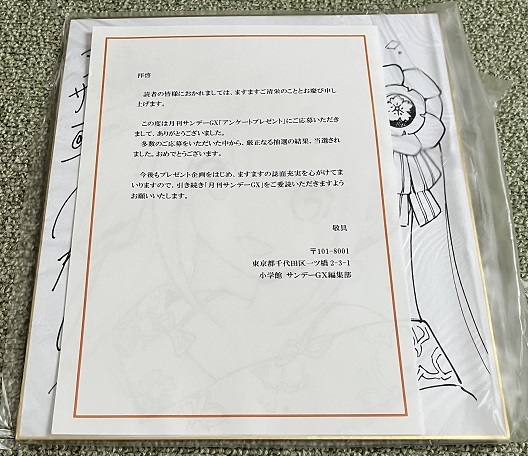 拝啓
読者の皆様におかれましては、ますますご清栄のこととお慶び申し
上げます。
この度は月刊サンデーGX「アンケートプレゼント」にご応募いただき
まして、ありがとうございました。
多数のご応募をいただいた中から、厳正なる抽選の結果、当選され
ました。おめでとうございます。
今後もプレゼント企画をはじめ、ますますの誌面充実を心がけてま
いりますので、引き続き「月刊サンデーGX」をご愛読いただきますよう
お願いいたします。
敬具
〒101-8001
東京都千代田区一ツ橋 2-3-1
小学館 サンデーGX編集部